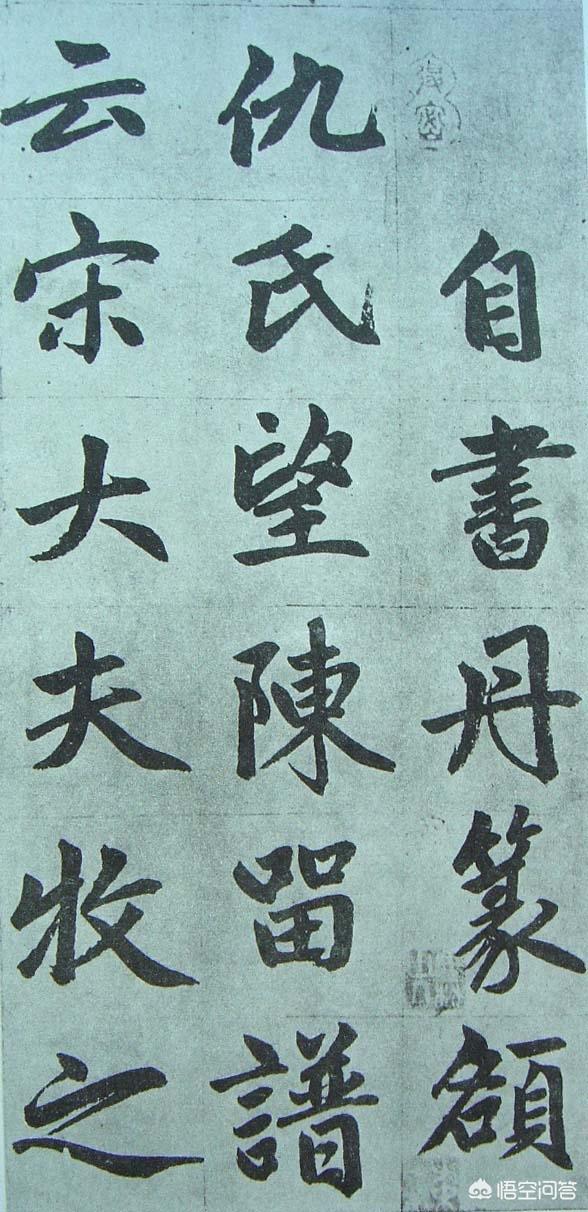 自書丹篆額
仇氏望陳留譜
云宋大夫牧之
悟空问答